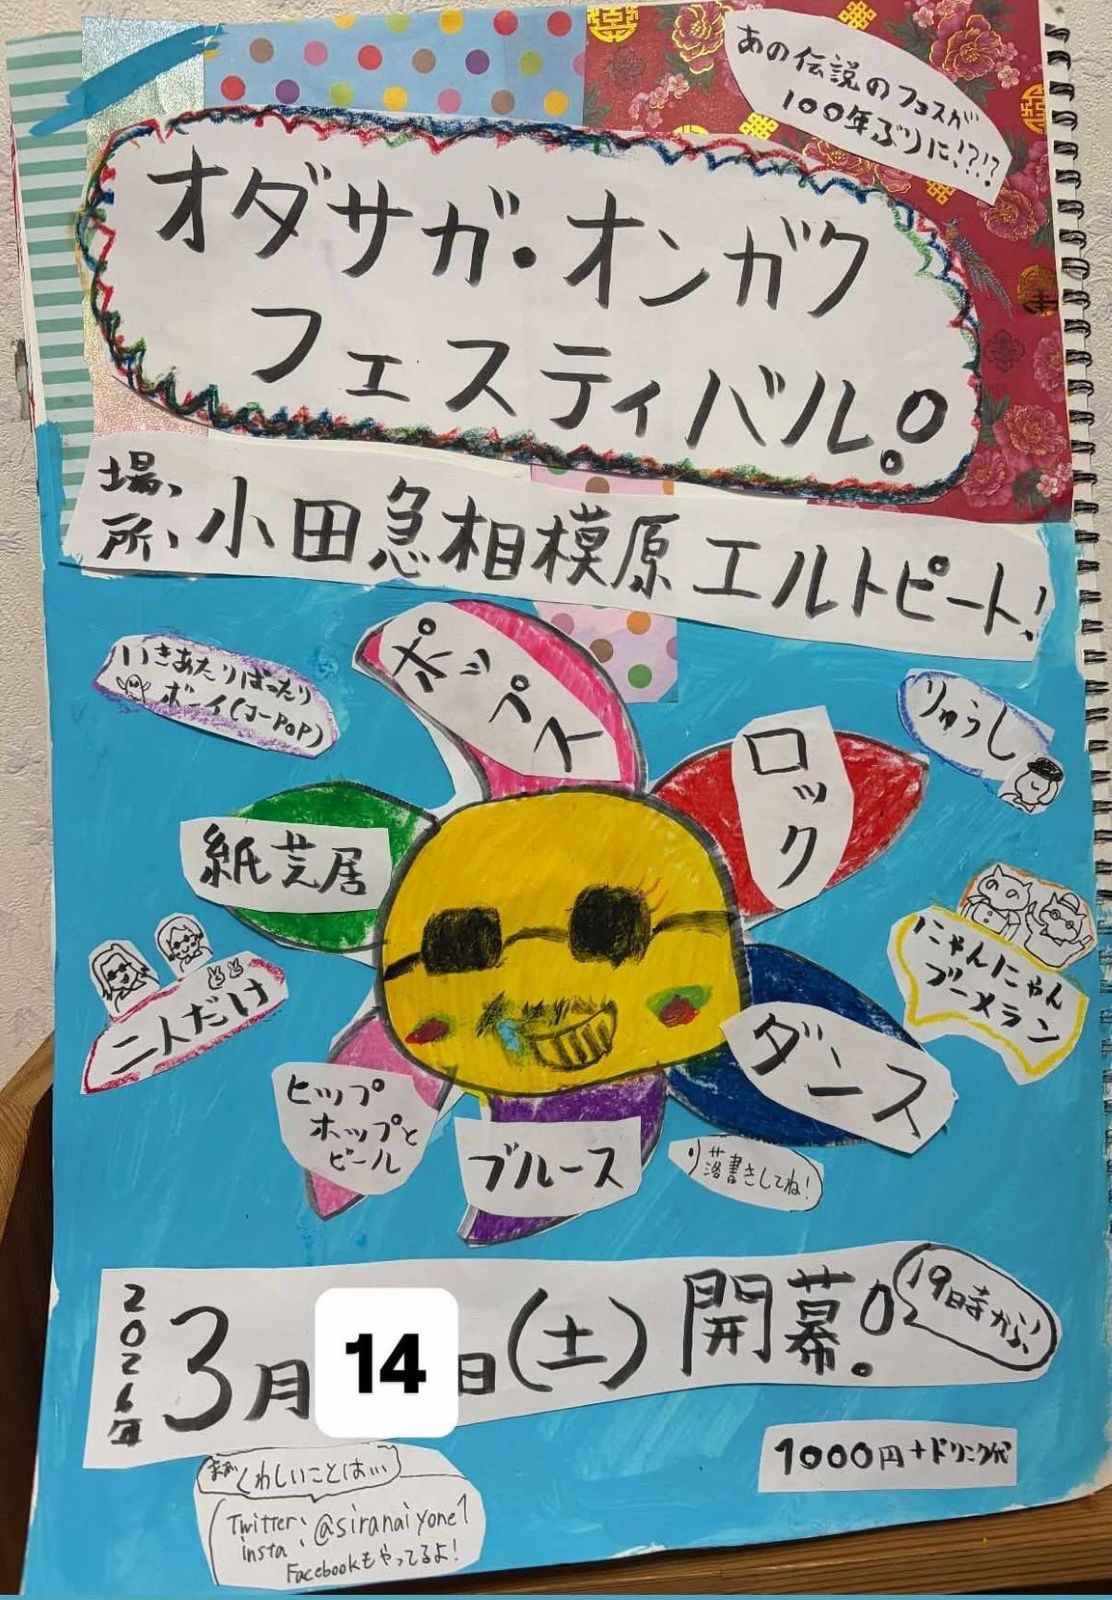 あの伝説のフェスが
100年ぶりに!?!?
オダサガ・オンガク
フェスティバル!
場所、小田急相模原 エルトピート!
ポップス
いきあたりばったり
ボーイ(J-POP)
りゅうし
ロック
紙芝居
にゃんにゃん
ブーメラン
二人だけ
ダンス
ヒップ
ホップと
ビール
ブルース
落書きしてね!
2026年
3月14日(土)開幕!
19時から!
1000円+ドリンク代
くわしいことは...
Twitter、
insta、@siranaiyone1
Facebookもやってるよ!